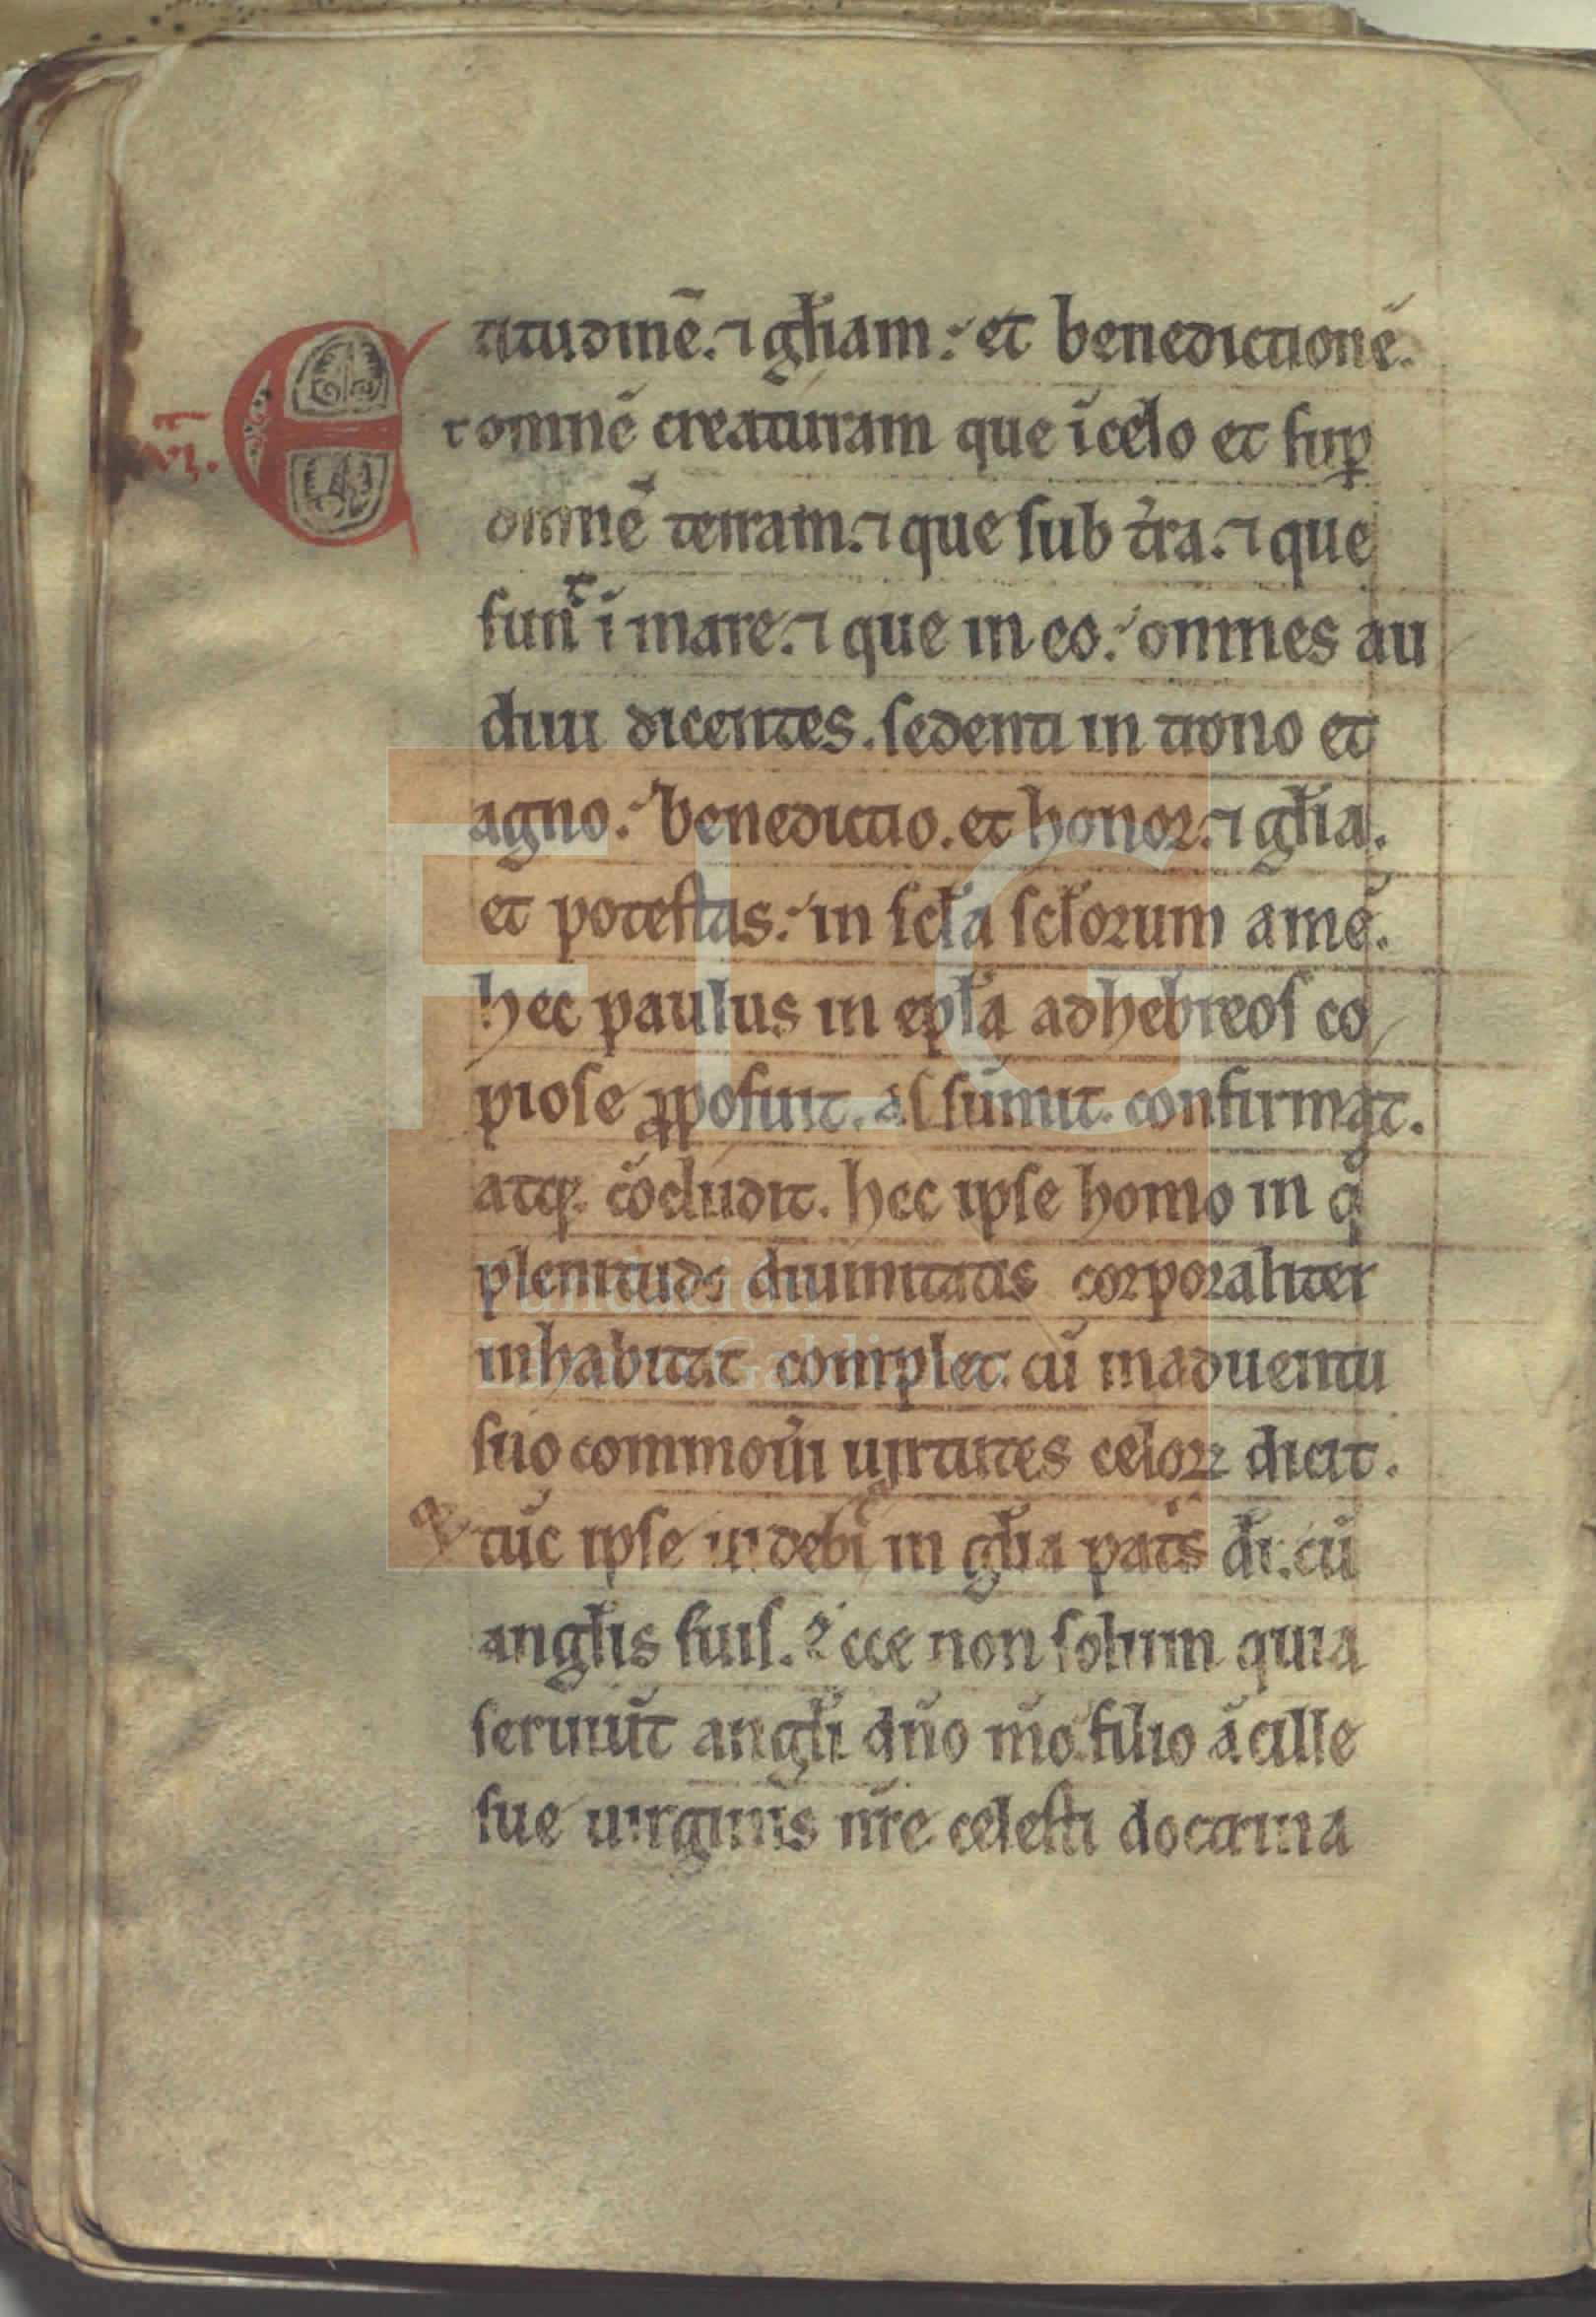 titudinē. ⁊ gl̄iam: et benedictionē.
Et omnē creaturam que ī celo et suꝑ
omnē terram. ⁊ que sub tr̄a. ⁊ que
sunt ī mare. ⁊ que in eo: omnes au
diui dicentes. sedenti in trono et
agno: benedictio. et honor. ⁊ gl̄ia.
et potestas: in scl̄a scl̄orum amē.
hec paulus in epl̄a ad hebreos co
piose ꝓposuit. assūmit. confirmat.
atq;. cōcludit. hec ipse homo in q̊
plenitudo diuinitatis corporaliter
inhabitat complet. cū in aduentu
suo commoūi uirtutes celoꝝ dicit.
tūc ipse uidebit᷑ in gl̄ia pat̄s dī. cū
angl̄is suis. Ecce non solum quia
seruiūt angl̄i dn̄o n̄o filio ācille
sue uirginis nr̄e celesti doctrina
FLG
Fundación
Lázaro Galdiano